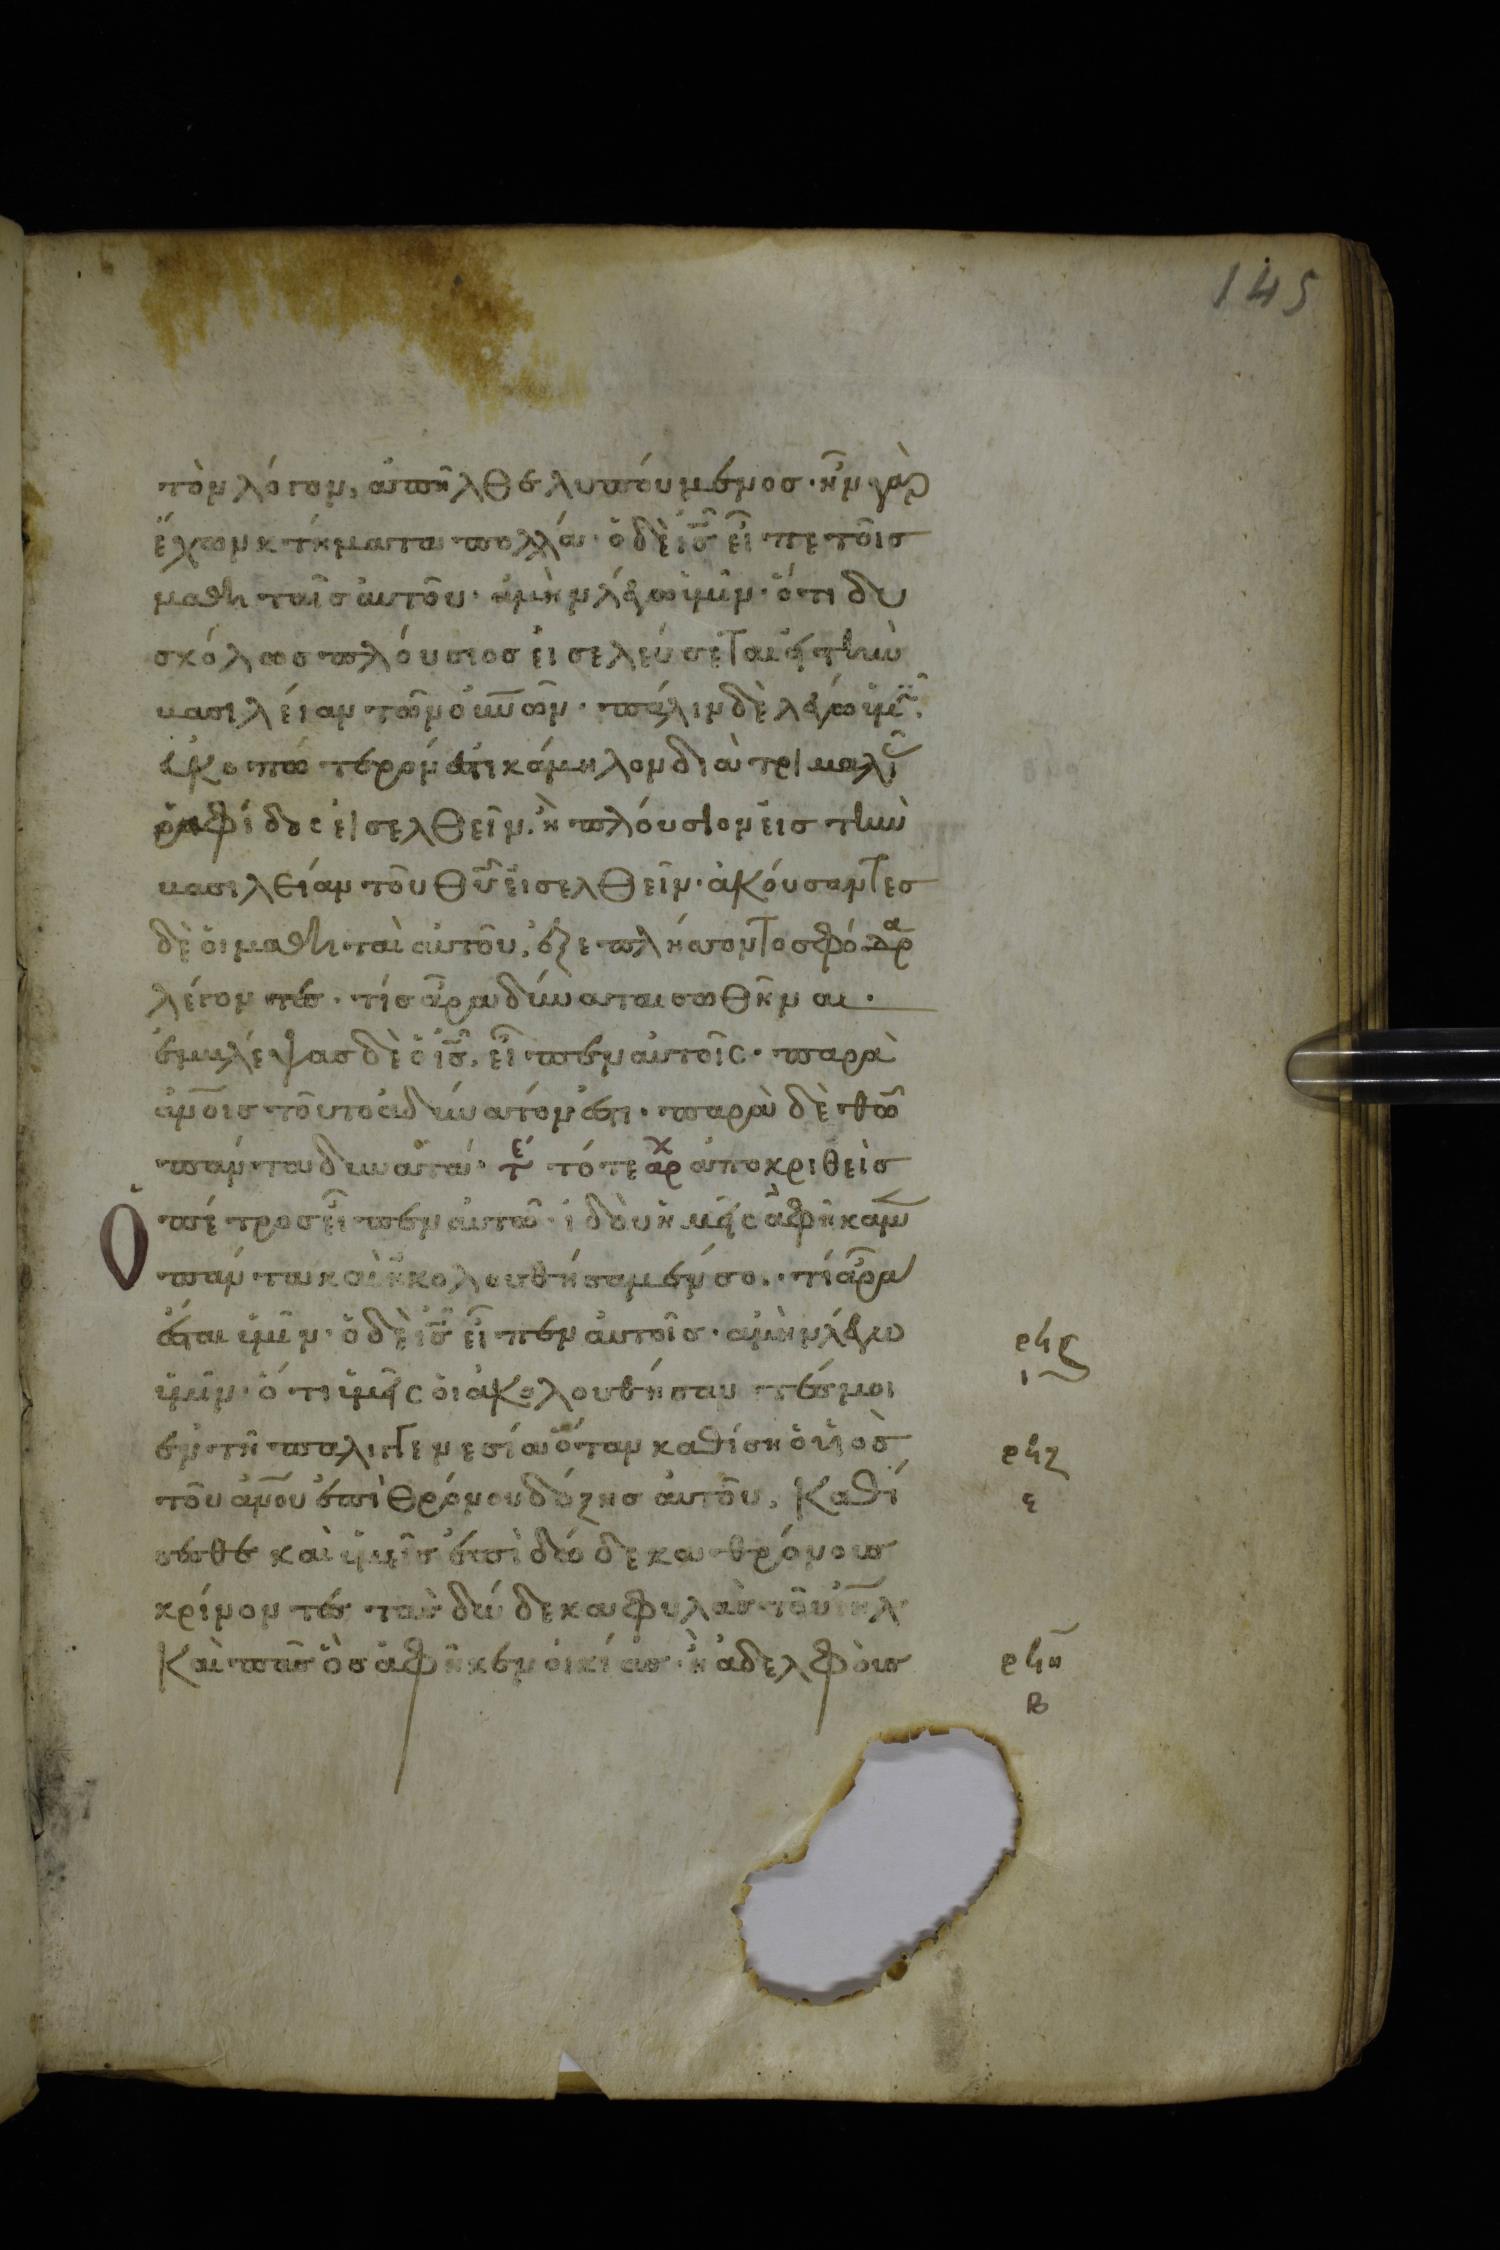 145
τὸν λόγον, ἀπῆλθε λυπούμενος· ἦν γὰρ
ἔχων κτήματα πολλά· ὁ δὲ ις̅ εἶπε τοῖς
μαθηταῖς αὐτοῦ· ἀμὴν λέγω ὑμῖν· ὅτι δυ
σκόλως πλούσιος εἰσελεύσεται εἰς τὴν
βασιλείαν τῶν οὐν̅ῶν· πάλιν δὲ λέγω ὑμῖν·
εὐκοπώτερόν ἐστι κάμηλον διὰ τρυμαλιᾶς
ῥαφίδος εἰσελθεῖν, ἢ πλούσιον εἰς τὴν
βασιλείαν τοῦ θυ̅ εἰσελθεῖν· ἀκούσαντες
δὲ οἱ μαθηταὶ αὐτοῦ, ἐξεπλήσσοντο σφόδρα
λέγοντες· τίς ἄρα δύναται σωθῆναι·
ἐμβλέψας δὲ ὁ ις̅, εἶπεν αὐτοῖς· παρὰ
ἀν̅οις τοῦτο ἀδύνατόν ἐστι· παρὰ δὲ θω̅
πάντα δυνατά· τε τότε αρχ ἀποκριθεὶς
ὁ πέτρος εἶπεν αὐτῶ· ἰδοὺ ἡμεῖς ἀφήκαμεν
πάντα καὶ ἠκολουθήσαμέν σοι· τί ἄρα
ἔσται ἡμῖν· ὁ δὲ ις̅ εἶπεν αὐτοῖς· ἀμὴν λέγω
ρϟϛ
ὑμῖν· ὅτι ὑμεῖς οἱ ἀκολουθήσαντές μοι
ι
ἐν τῆ παλιγγενεσία ὅταν καθίση ὁ υἱὸς
ρϟζ
τοῦ ἀν̅ου ἐπὶ θρόνου δόξης αὐτοῦ, καθί
ε
σεσθε καὶ ὑμεῖς ἐπὶ δώδεκα θρόνους
κρίνοντες τὰς δώδεκα φυλὰς τοῦ ιηλ̅·
Καὶ πᾶς ὃς ἀφῆκεν οἰκίας· ἢ ἀδελφοὺς
ρϟη
β